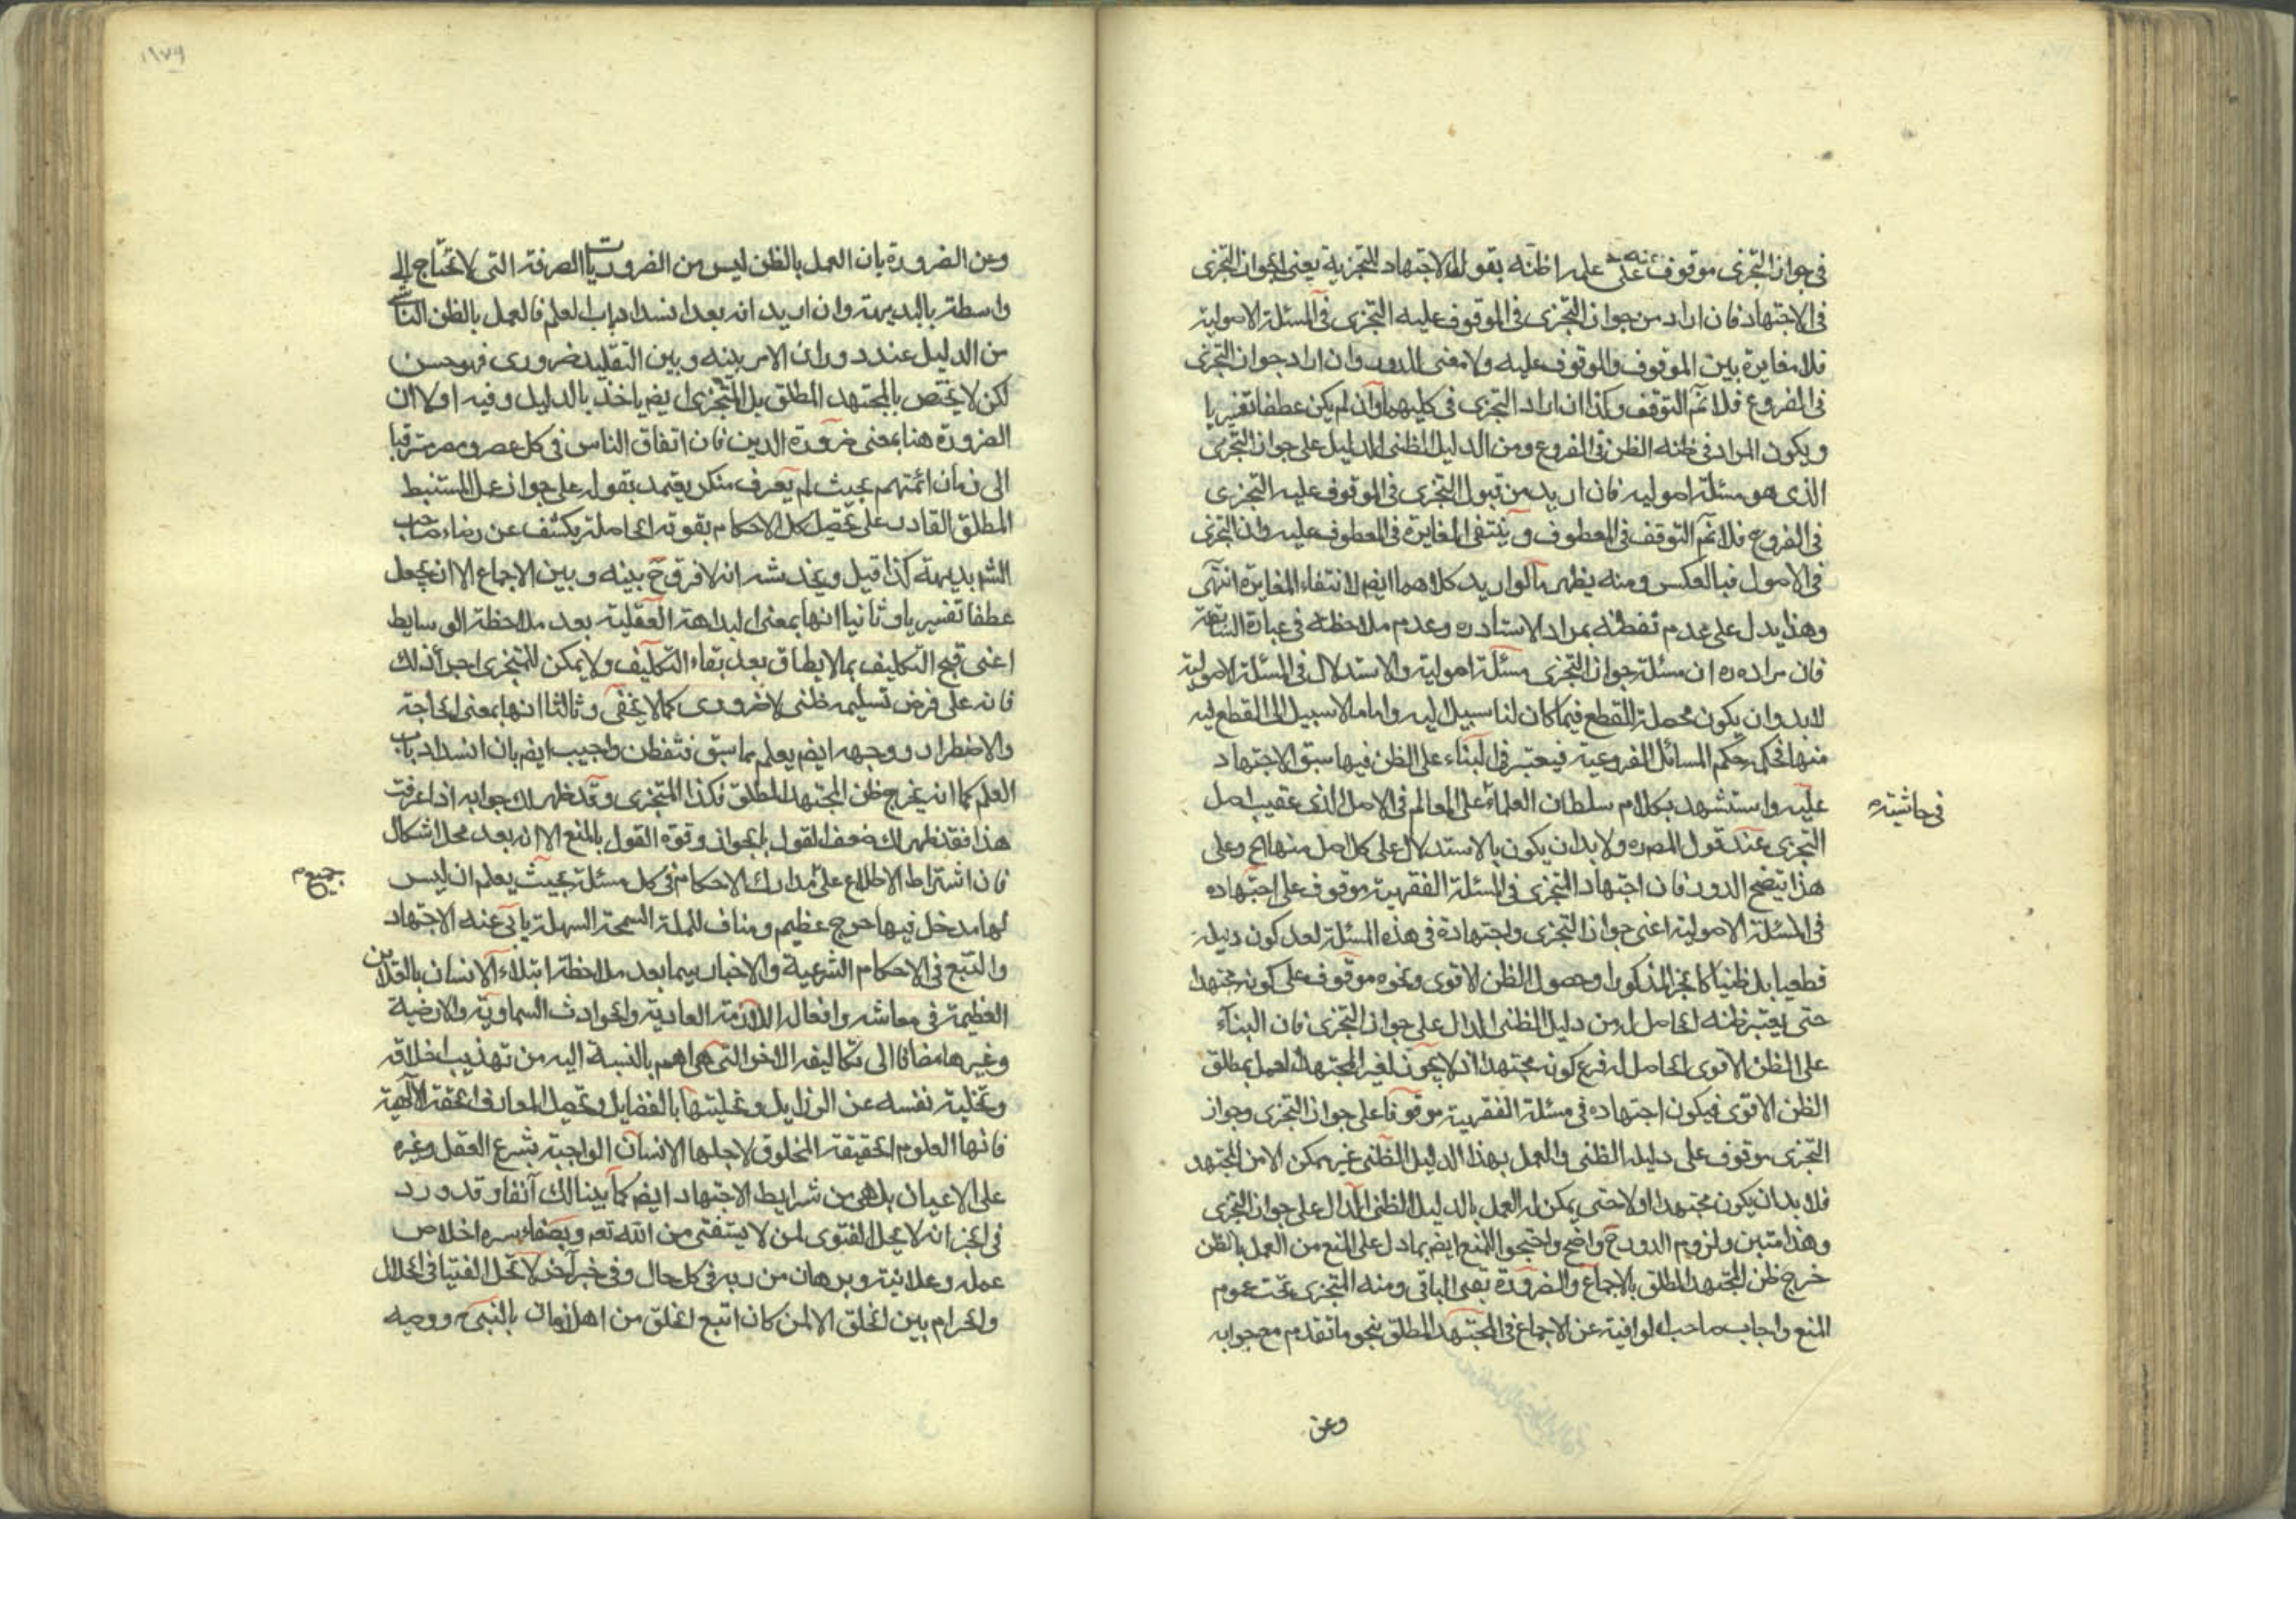 في جواز التجزى موقوف عنده على علمه اظنه بقوله الاجتهاد للتجزية يعنى لجواز التجزى
في الاجتهاد فان اراد من جواز التجزى في الموقوف عليه التجزى في المسئلة الاصولية
فلا مغايرة بين الموقوف والموقوف عليه ولا معنى للدور وان اراد جواز التجزى
في الفروع فلا نم التوقف وكذا ان اراد التجزى في كليهما وان لم يكن عطفا تفسيريا
ويكون المراد في ظنه الظن في الفروع ومن الدليل الظنى الدليل على جواز التجزى
الذى هو مسئلة اصولية فان اريد من قبول التجزى في الموقوف عليه التجزى
في الفروع فلا نم التوقف في المعطوف وينتفى المغايرة في المعطوف عليه وان التجزى
في الاصول فبالعكس ومنه يظهر ما لو اريد كلاهما ايضم لانتفاء المغايرة انتهى
وهذا يدل على عدم تفطنه بمراد الاستاد ره وعدم ملاحظته في عبارة السابقة
فان مراده ره ان مسئلة جواز التجزى مسئلة اصولية والاستدلال في المسئلة الاصولية
لابد وان يكون محصلة للقطع فيما كان لنا سبيل اليه واما ما لا سبيل الى القطع اليه
منها فحكمه حكم المسائل الفروعية فيعتبر في البناء على الظن فيها سبق الاجتهاد
عليه واستشهد بكلام سلطان العلماء على المعالم في الاصل الذى عقيب اصل
في حاشيته
التجزى عند قول المصره ولا بد ان يكون بالاستدلال على كل اصل منها الخ وعلى
هذا تيضح الدور فان اجتهاد التجزى في المسئلة الفقهية موقوف على اجتهاده
في المسئلة الاصولية اعنى جواز التجزى واجتهاده في هذه المسئلة لعدم كون دليله
قطعيا بل ظنيا كالخبر المذكور او حصول الظن الاقوى ونحوه موقوف على كونه مجتهدا
حتى يعتبر ظنه الحاصل له من دليل الظنى الدال على جواز التجزى فان البناء
على الظن الاقوى الحاصل له فرع كونه مجتهدا اذ لا يجوز لغير المجتهد العمل بمطلق
الظن الاقوى فيكون اجتهاده في مسئلة الفقهية موقوفا على جواز التجزى وجواز
التجزى موقوف على دليله الظنى والعمل بهذا الدليل الظنى غير ممكن الا من المجتهد
فلا بد ان يكون مجتهدا اولا حتى يمكن له العمل بالدليل الظنى الدال على جواز التجزى
وهذا متين ولزوم الدور ح واضح واحتجوا للمنع ايضم بما دل على المنع من العمل بالظن
خرج ظن المجتهد المطلق بالاجماع والضرورة بقى الباقى ومنه التجزى تحت عموم
المنع واجاب صاحب الوافية عن الاجماع في المجتهد المطلق بنحو ما تقدم مع جوابه
وعن
وعن الضرورة بان العمل بالظن ليس من الضروريات الصرفة التى لا تحتاج الى
واسطة بالبديهة وان اريد انه بعد انسداد باب العلم فالعمل بالظن الناشى
من الدليل عند دوران الامر بينه وبين التقليد ضرورى فهو حسن
لكن لا يختص بالمجتهد المطلق بل المتجزى ايضم ياخذ بالدليل وفيه اولا ان
الضرورة هنا بمعنى ضرورة الدين فان اتفاق الناس في كل عصر ومصر مترقيا
الى زمان ائمتهم بحيث لم يعرف منكر يعتمد بقوله على جواز عمل المستنبط
المطلق القادر على تحصيل كل الاحكام بقوته الحاصلة يكشف عن رضاء صاحب
الشم بديهة كذا قيل ويخدشه انه لا فرق ح بينه وبين الاجماع الا ان يجعل
عطفا تفسيريا وثانيا انها بمعنى البداهة العقلية بعد ملاحظة الوسايط
اعنى قبح التكليف بما لا يطاق بعد بقاء التكليف ولا يمكن للمتجزى اجراء ذلك
فانه على فرض تسليمه ظنى لا ضرورى كما لا يخفى وثالثا انها بمعنى الحاجة
والاضطرار ووجهه ايضم يعلم مما سبق فتفطن واجيب ايضم بان انسداد باب
العلم كما انه يخرج ظن المجتهد المطلق فكذا المتجزى وقد ظهر لك جوابه اذا عرفت
هذا فقد ظهر لك ضعف القول بالجواز وقوة القول بالمنع الا انه بعد محل اشكال
فان اشتراط الاطلاع على مدارك الاحكام في كل مسئلة بحيث يعلم ان ليس
جميع م
لها مدخل فيها حرج عظيم ومناف للملة السمحة السهلة يابى عنه الاجتهاد
والتتبع في الاحكام الشرعية والاخبار سيما بعد ملاحظة ابتلاء الانسان بالقدارين
العظيمة في معاشه وافعاله اللازمة العادية والحوادث السماوية والارضية
وغيرها مضافا الى تكاليفه الاخر التى هى اهم بالنسبة اليه من تهذيب اخلاقه
وتخلية نفسه عن الرذايل وتحليتها بالفضايل وتحصيل المعارف الحقة الالهية
فانها العلوم الحقيقة المخلوق لاجلها الانسان الواجبة بشرع العقل وغيره
على الاعيان بل هى من شرايط الاجتهاد ايضم كما بينا لك آنفا وقد ورد
في الخبر انه لا يحل الفتوى لمن لا يستفتى من الله تعم وبصفاء سره اخلاص
عمله وعلانيته وبرهان من ربه في كل حال وفي خبر آخر لا تحل الفتيا في الحلال
والحرام بين الخلق الا لمن كان اتبع الخلق من اهل زمانه بالنبى ص ووصيه